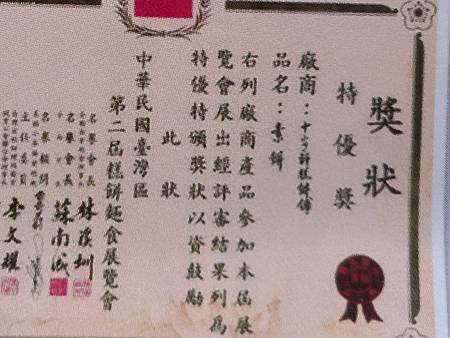 獎狀
特優獎
廠商：
品名：素餅
右列廠商產品參加本屆展
覽會展出經評審結果列為
特優特頒獎狀以資鼓勵
此狀
中華民國臺灣區
第二屆糕餅麵食展覽會
名譽會長
名譽會長 蘇南成
名譽顧問
主任委員 李文耀